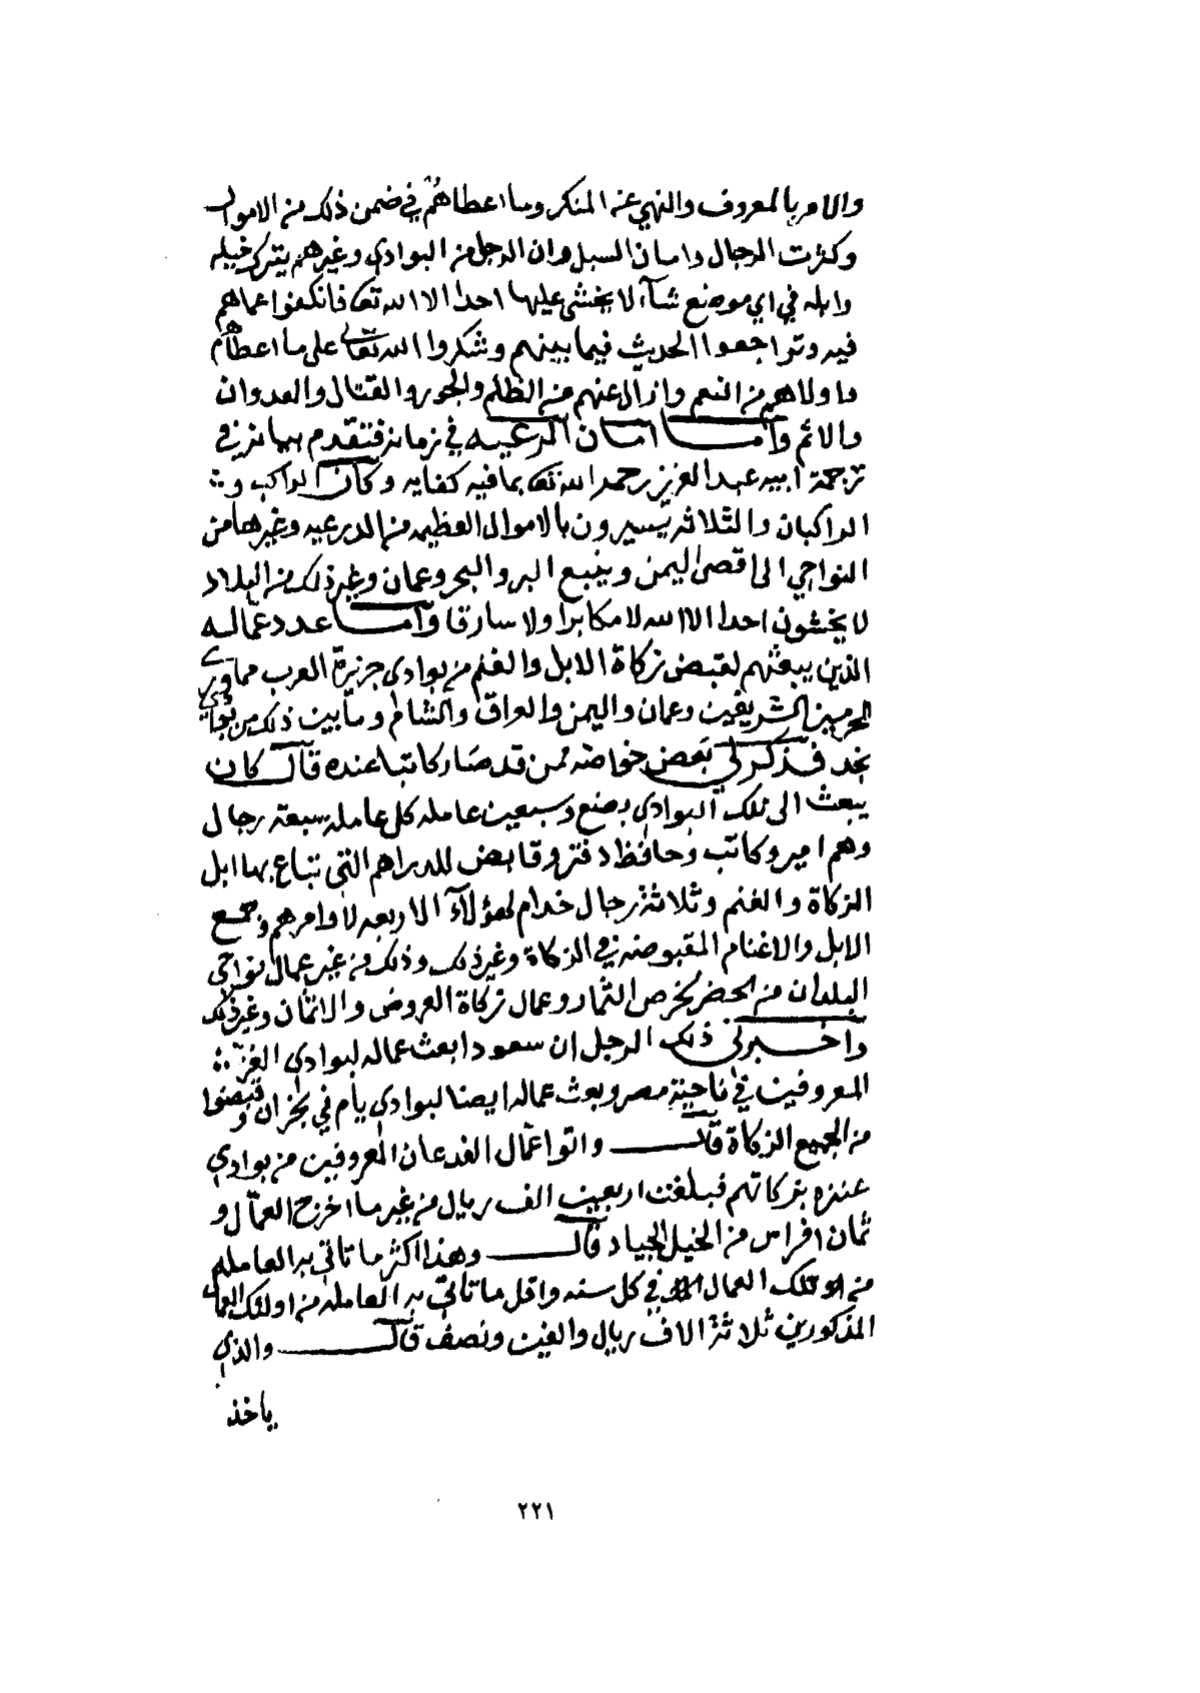 والامر بالمعروف والنهي عن المنكر وما اعطاهم في ضمن ذلك من الاموال
وكثرت الرجال وامان السبل وان الرجل من البوادي وغيرهم يترك خيله
وابله في اي موضع شآء لا يخشى عليها احدا الا الله تعا فانكفوا عماهم
فيه وتراجعوا الحديث فيما بينهم وشكروا الله تعالى على ما اعطاهم
واولاهم من النعم وازال عنهم من الظلم والجور والقتال والعدوان
والاثم وأما امان الرعيه في زمانه فتقدم بيانه في
ترجمة ابيه عبد العزيز رحمه الله تعا بما فيه كفايه وكان الراكب و
الراكبان والثلاثه يسيرون بالاموال العظيمه من الدرعيه وغيرها من
النواحي الى اقصى اليمن وينبع البر والبحر وعمان وغير ذلك من البلاد
لا يخشون احدا الا الله لا مكابرا ولا سارقا وأما عدد عماله
الذين يبعثهم لقبض زكاة الابل والغنم من بوادي جزيرة العرب مما وري
الحرمين الشريفين وعمان واليمن والعراق والشام وما بين ذلك من بوادي
نجد فذكر لي بعض خواصه ممن قد صار كاتبا عنده قال كان
يبعث الى تلك البوادي بضع وسبعين عامله كل عامله سبعة رجال
وهم امير وكاتب وحافظ دفتر وقابض للدراهم التي تباع بها ابل
الزكاة والغنم وثلاثة رجال خدام لهؤلآء الاربعه لاوامرهم وجمع
الابل والاغنام المقبوضه في الزكاة وغير ذلك وذلك من غير عمال نواحي
البلدان من الحضر لخرص الثمار وعمال زكاة العروض والاثمان وغير ذلك
واخبرني ذلك الرجل ان سعودا بعث عماله لبوادي الغز
المعروفين في ناحية مصر وبعث عماله ايضا لبوادي يام في نجران وقبضوا
من الجميع الزكاة قال واتوا عمال الفدعان المعروفين من بوادي
عنزه بزكاتهم فبلغت اربعين الف ريال من غير ما اخرج العمال و
ثمان افراس من الخيل الجياد قال وهذا اكثر ما تاتي به العامله
من تلك العمال في كل سنه واقل ما تاتي به العامله من اولئك العمال
المذكورين ثلاثة الاف ريال والفين ونصف قال والذي
ياخذ
٢٢١